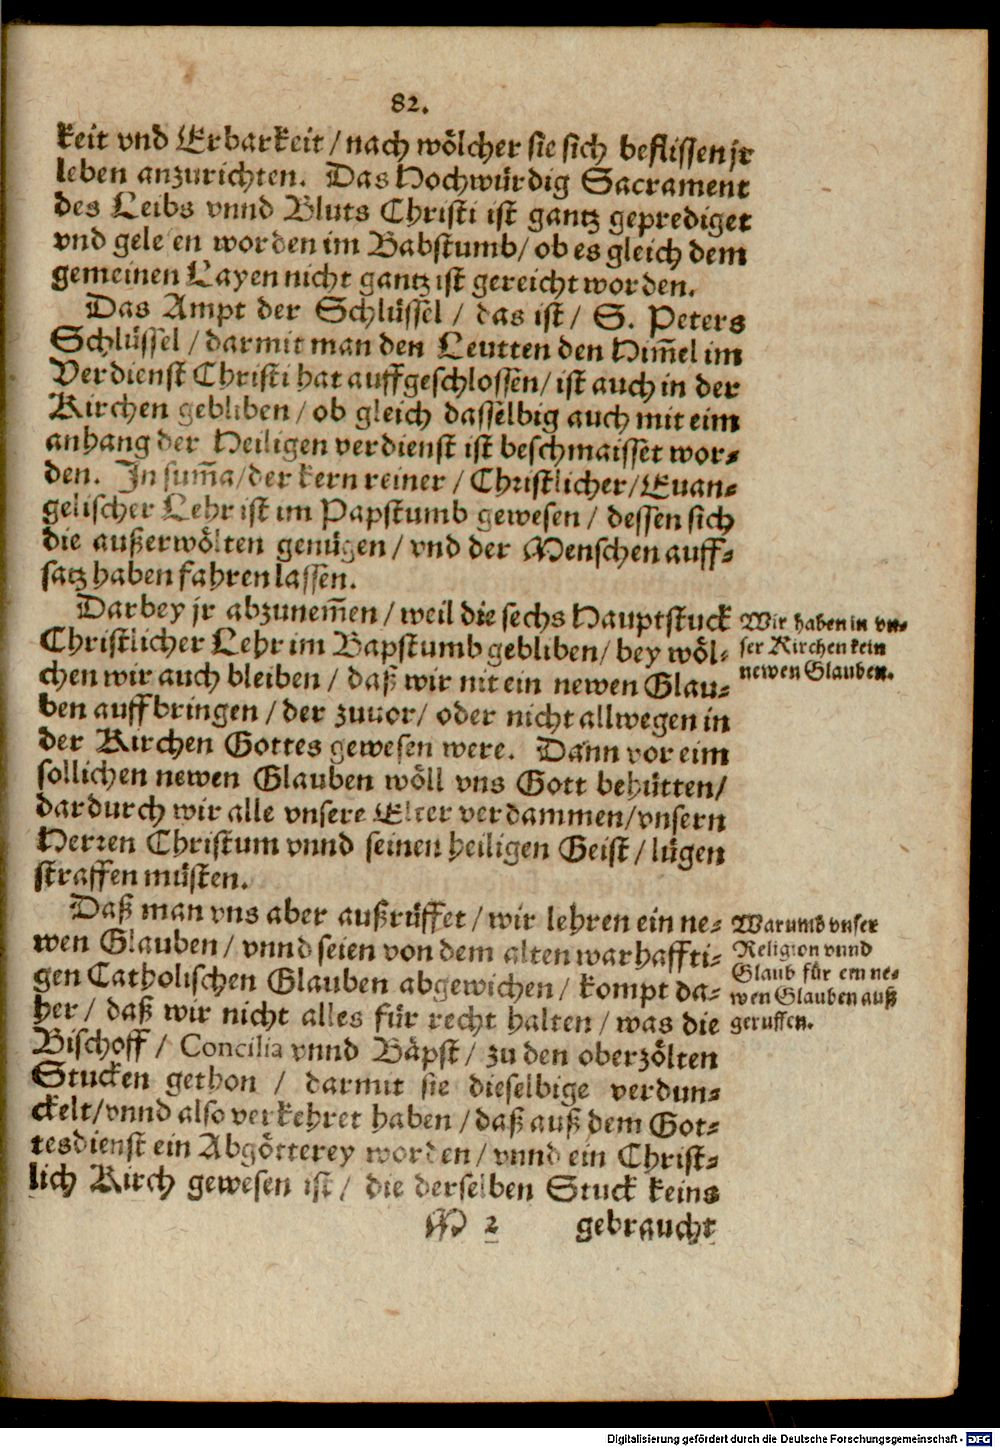 82.
keit vnd Erbarkeit / nach wölcher sie sich beflissen jr
leben anzurichten. Das Hochwürdig Sacrament
des Leibs vnnd Bluts Christi ist gantz geprediget
vnd gele en worden im Babstumb / ob es gleich dem
gemeinen Layen nicht gantz ist gereicht worden.
Das Ampt der Schlüssel / das ist / S. Peters
Schlüssel / darmit man den Leutten den Him̃el im
Verdienst Christi hat auffgeschlossen / ist auch in der
Kirchen gebliben / ob gleich dasselbig auch mit eim
anhang der Heiligen verdienst ist beschmaisset wor-
den. In sum̃a / der kern reiner / Christlicher / Euan-
gelischer Lehr ist im Papstumb gewesen / dessen sich
die außerwölten genügen / vnd der Menschen auff-
satz haben fahren lassen.
Darbey jr abzunem̃en / weil die sechs Hauptstuck
Christlicher Lehr im Bapstumb gebliben / bey wöl-
chen wir auch bleiben / daß wir nit ein newen Glau-
ben auffbringen / der zuuor / oder nicht allwegen in
der Kirchen Gottes gewesen were. Dann vor eim
sollichen newen Glauben wöll vns Gott behütten /
dardurch wir alle vnsere Elter verdammen / vnsern
Herren Christum vnnd seinen heiligen Geist / lügen
straffen müsten.
Wir haben in vn-
ser Kirchen kein
newen Glauben.
Daß man vns aber außrüffet / wir lehren ein ne-
wen Glauben / vnnd seien von dem alten warhaffti-
gen Catholischen Glauben abgewichen / kompt da-
her / daß wir nicht alles für recht halten / was die
Bischoff / Concilia vnnd Bäpst / zu den oberzölten
Stucken gethon / darmit sie dieselbige verdun-
ckelt / vnnd also verkehret haben / daß auß dem Got-
tesdienst ein Abgötterey worden / vnnd ein Christ-
lich Kirch gewesen ist / die derselben Stuck keins
Warumb vnser
Religion vnnd
Glaub für ein ne-
wen Glauben auß
geruffen.
M 2 gebraucht
Digitalisierung gefördert durch die Deutsche Forschungsgemeinschaft - DFG